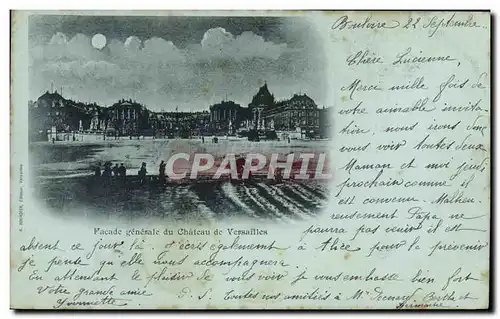 Pontoise 22 Septembre
Chère Lucienne,
Merci mille fois de
votre aimable invita-
tion, nous irons donc
vous voir toutes deux
Maman et moi jeudi
prochain comme il
est convenu. Malheu-
reusement Papa ne
CPARAMA
Façade générale du Château de Versailles
pourra pas venir étant
absent ce jour là. J'écris également à Alice pour la prévenir
je pense qu'elle nous accompagnera
En attendant le plaisir de vous voir je vous embrasse bien fort
Votre grande amie P.S. Toutes nos amitiés à Mme Berthe et
Yvonnette Germaine